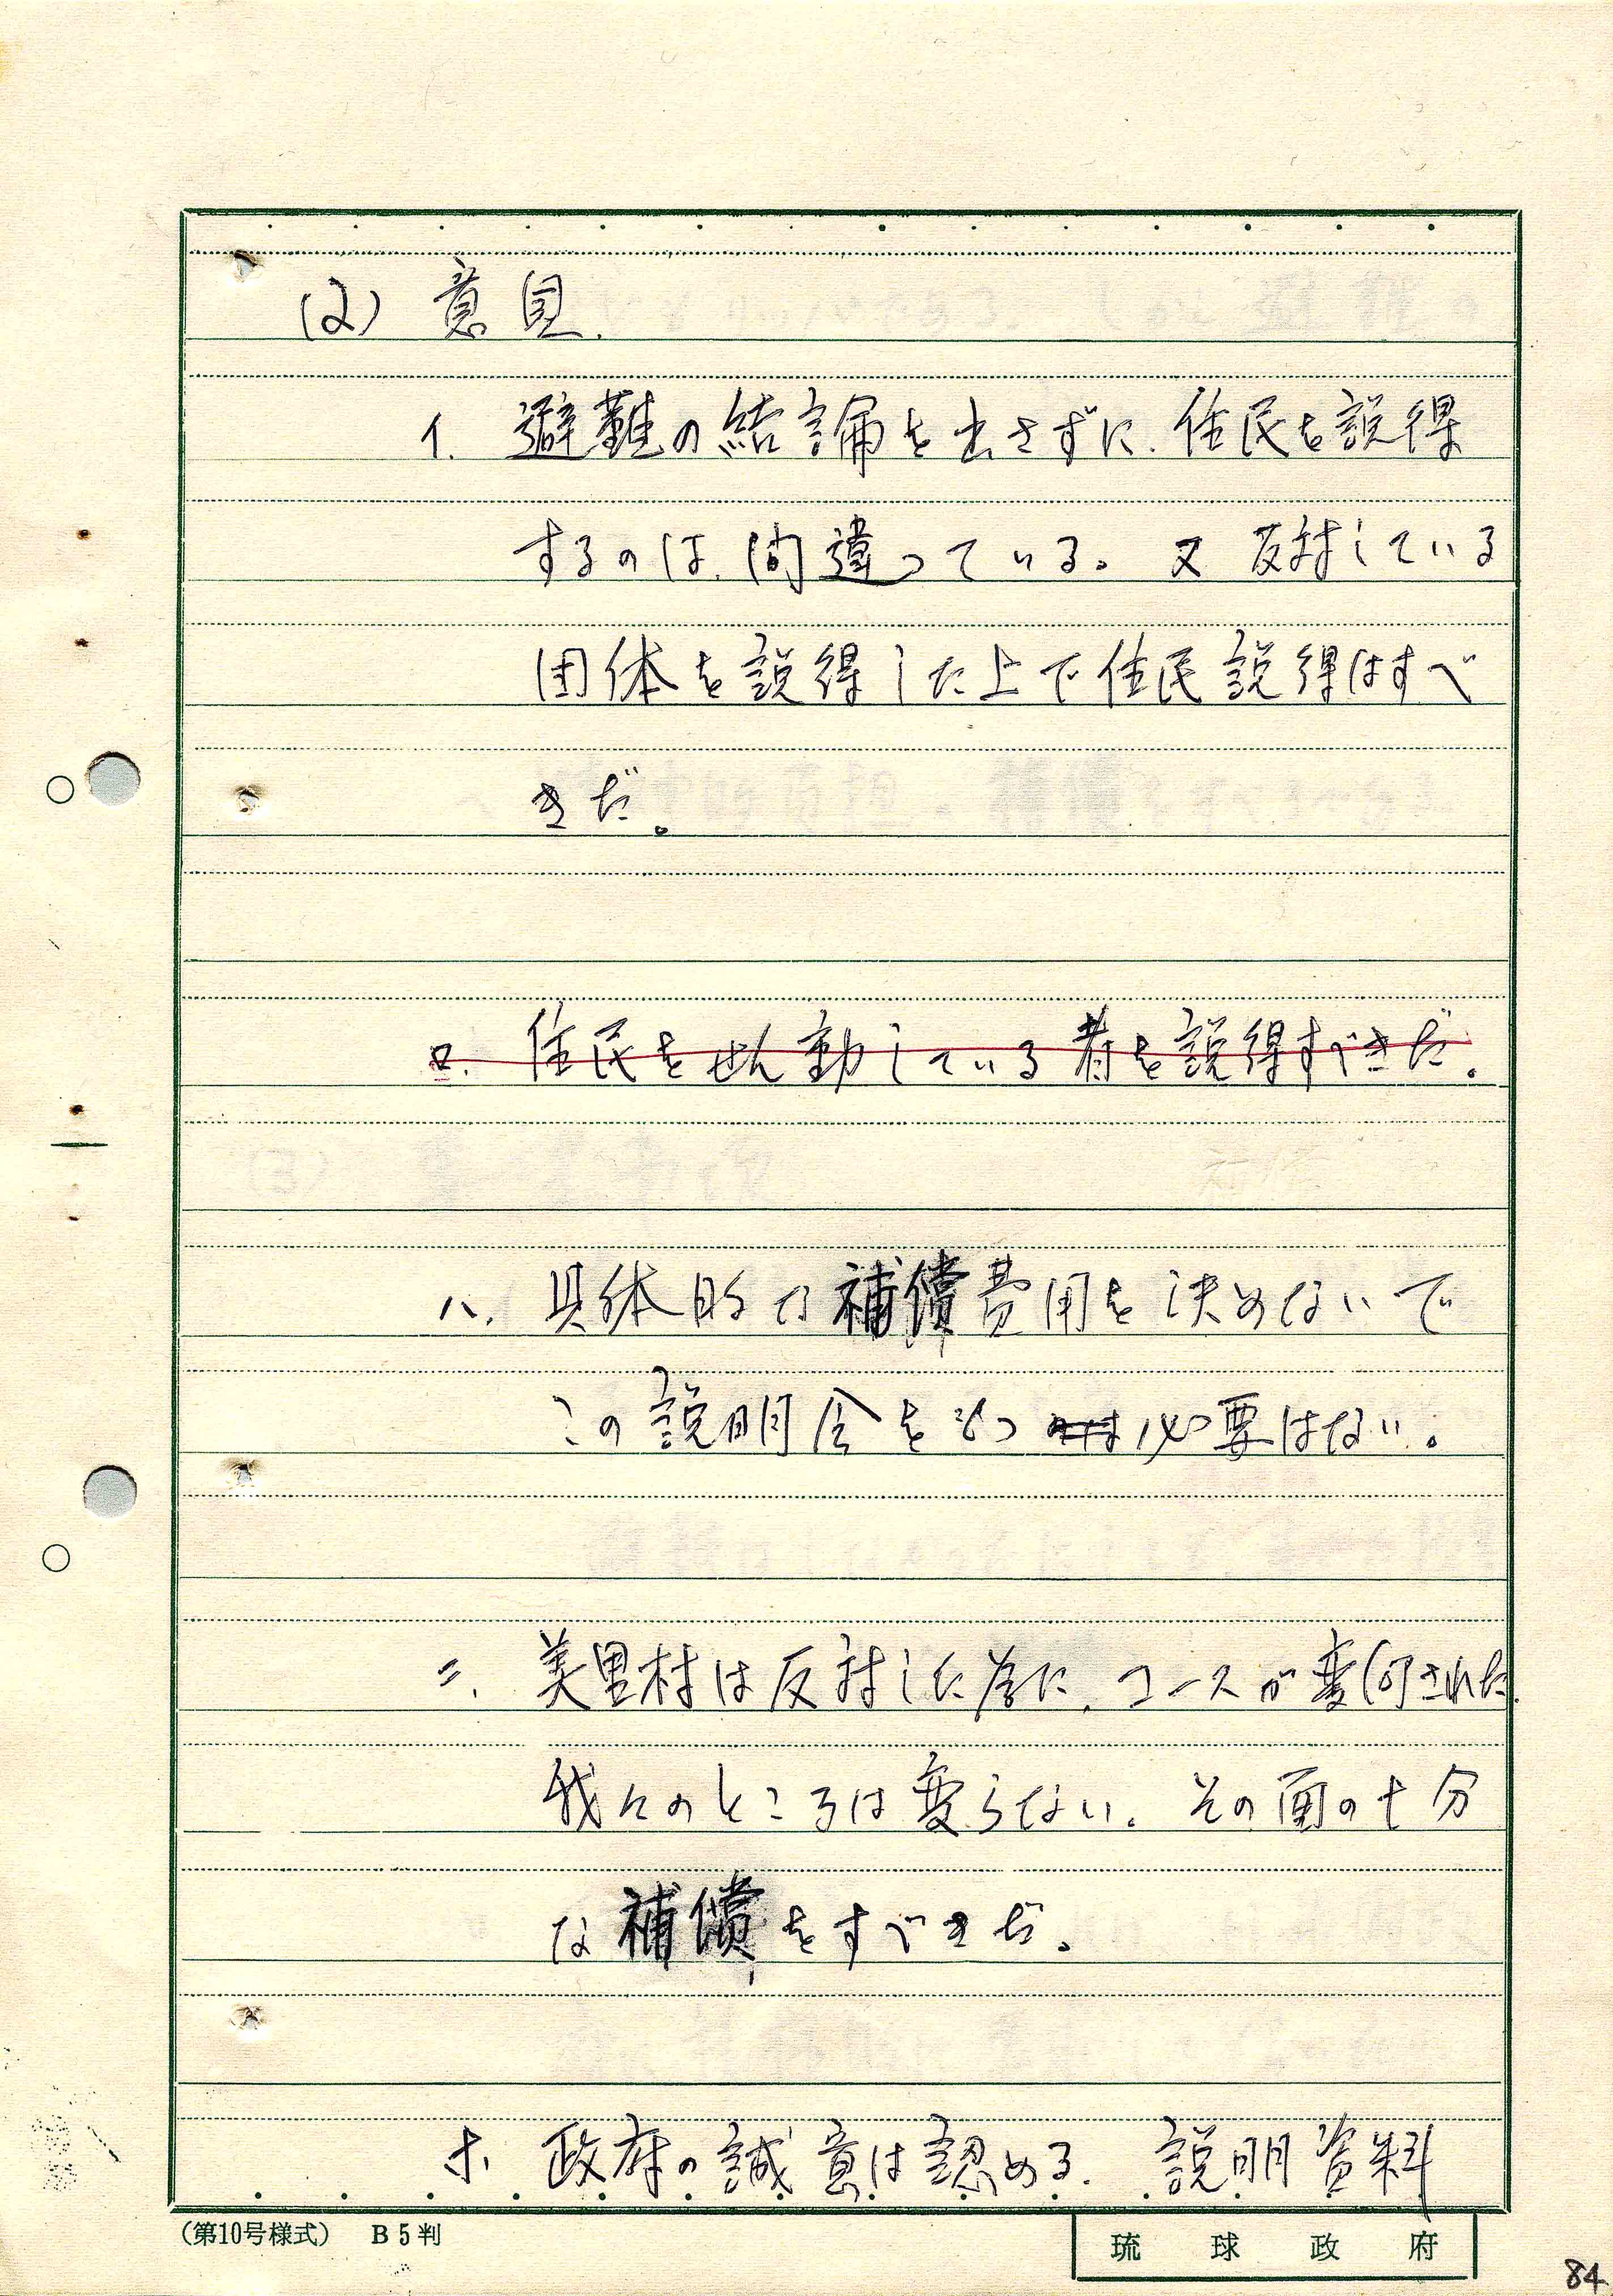 (2) 意見.
イ. 避難の結論を出さずに、住民を説得
するのは、間違っている。又反対している
団体を説得した上で住民説得はすべ
きだ。
ロ. 住民をせん動している者を説得すべきだ。
ハ. 具体的な補償費用を決めないで
この説明会をもつ のは必要はない。
ニ. 美里村は反対した為に、コースが変何された.
我々のところは変らない。その面の十分
な補償をすべきだ。
ホ. 政府の誠意は認める. 説明資料
(第10号様式) B5判
琉球政府
84